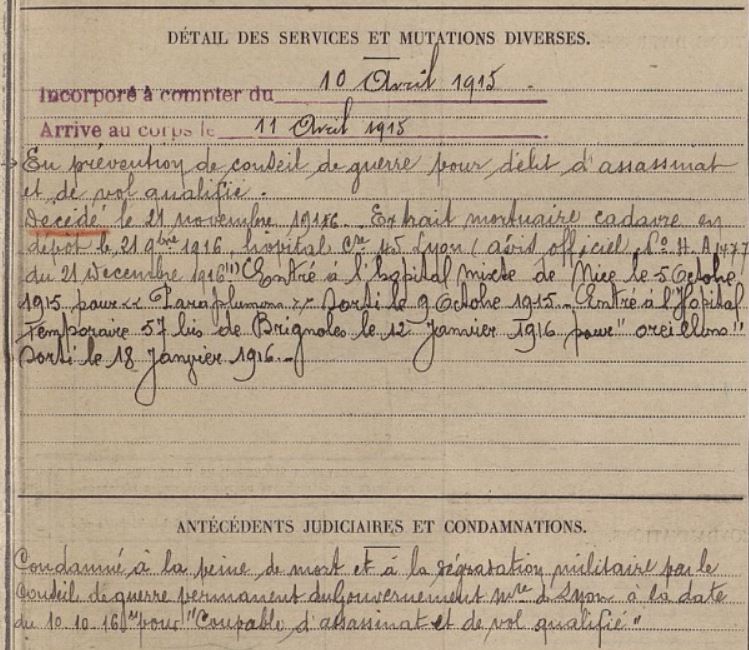 DÉTAIL DES SERVICES ET MUTATIONS DIVERSES.
Incorporé à compter du 10 Avril 1915.
Arrivé au corps le 11 Avril 1915
En prévention de conseil de guerre pour délit d'assassinat
et de vol qualifié.
Décédé le 21 novembre 1916. Extrait mortuaire cadavre en
dépot le 21 9bre 1916, hopital Cre 45 Lyon (avis officiel No H. A 1477
du 21 Decembre 1916 (1) Entré à l'hopital mixte de Nice le 5 Octobre
1915 pour << Paraplumon >> Sorti le 9 Octobre 1915 - Entré à l'Hopital
Temporaire 57 bis de Brignoles le 12 Janvier 1916 pour "oreillons"
Sorti le 18 Janvier 1916.-
ANTÉCÉDENTS JUDICIAIRES ET CONDAMNATIONS.
Condamné à la peine de mort et à la dégradation militaire par le
Conseil de guerre permanent du Gouvernement mre de Lyon à la date
du 10.10.16 pour "Coupable d'assassinat et de vol qualifié"